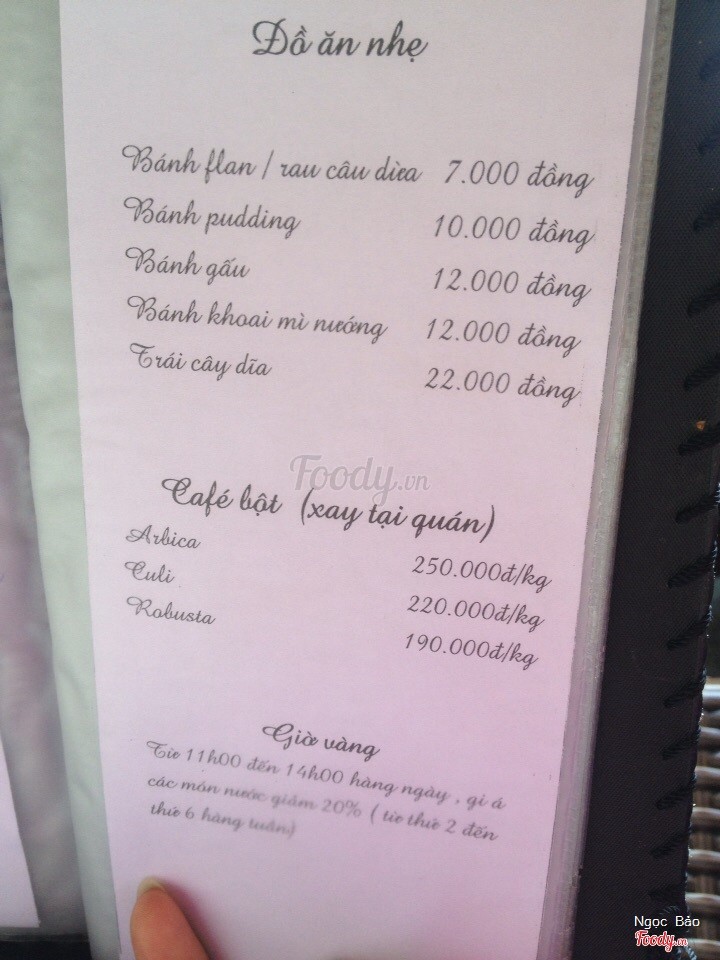 Đồ ăn nhẹ
Bánh flan / rau câu dừa 7.000 đồng
Bánh pudding 10.000 đồng
Bánh gấu 12.000 đồng
Bánh khoai mì nướng 12.000 đồng
Trái cây dĩa 22.000 đồng
Foody.vn
Café bột (xay tại quán)
Arbica 250.000đ/kg
Culi 220.000đ/kg
Robusta 190.000đ/kg
Giờ vàng
Từ 11h00 đến 14h00 hàng ngày , gi á
các món nước giảm 20% ( từ thứ 2 đến
thứ 6 hàng tuần)
Ngọc Bảo
Foody.vn